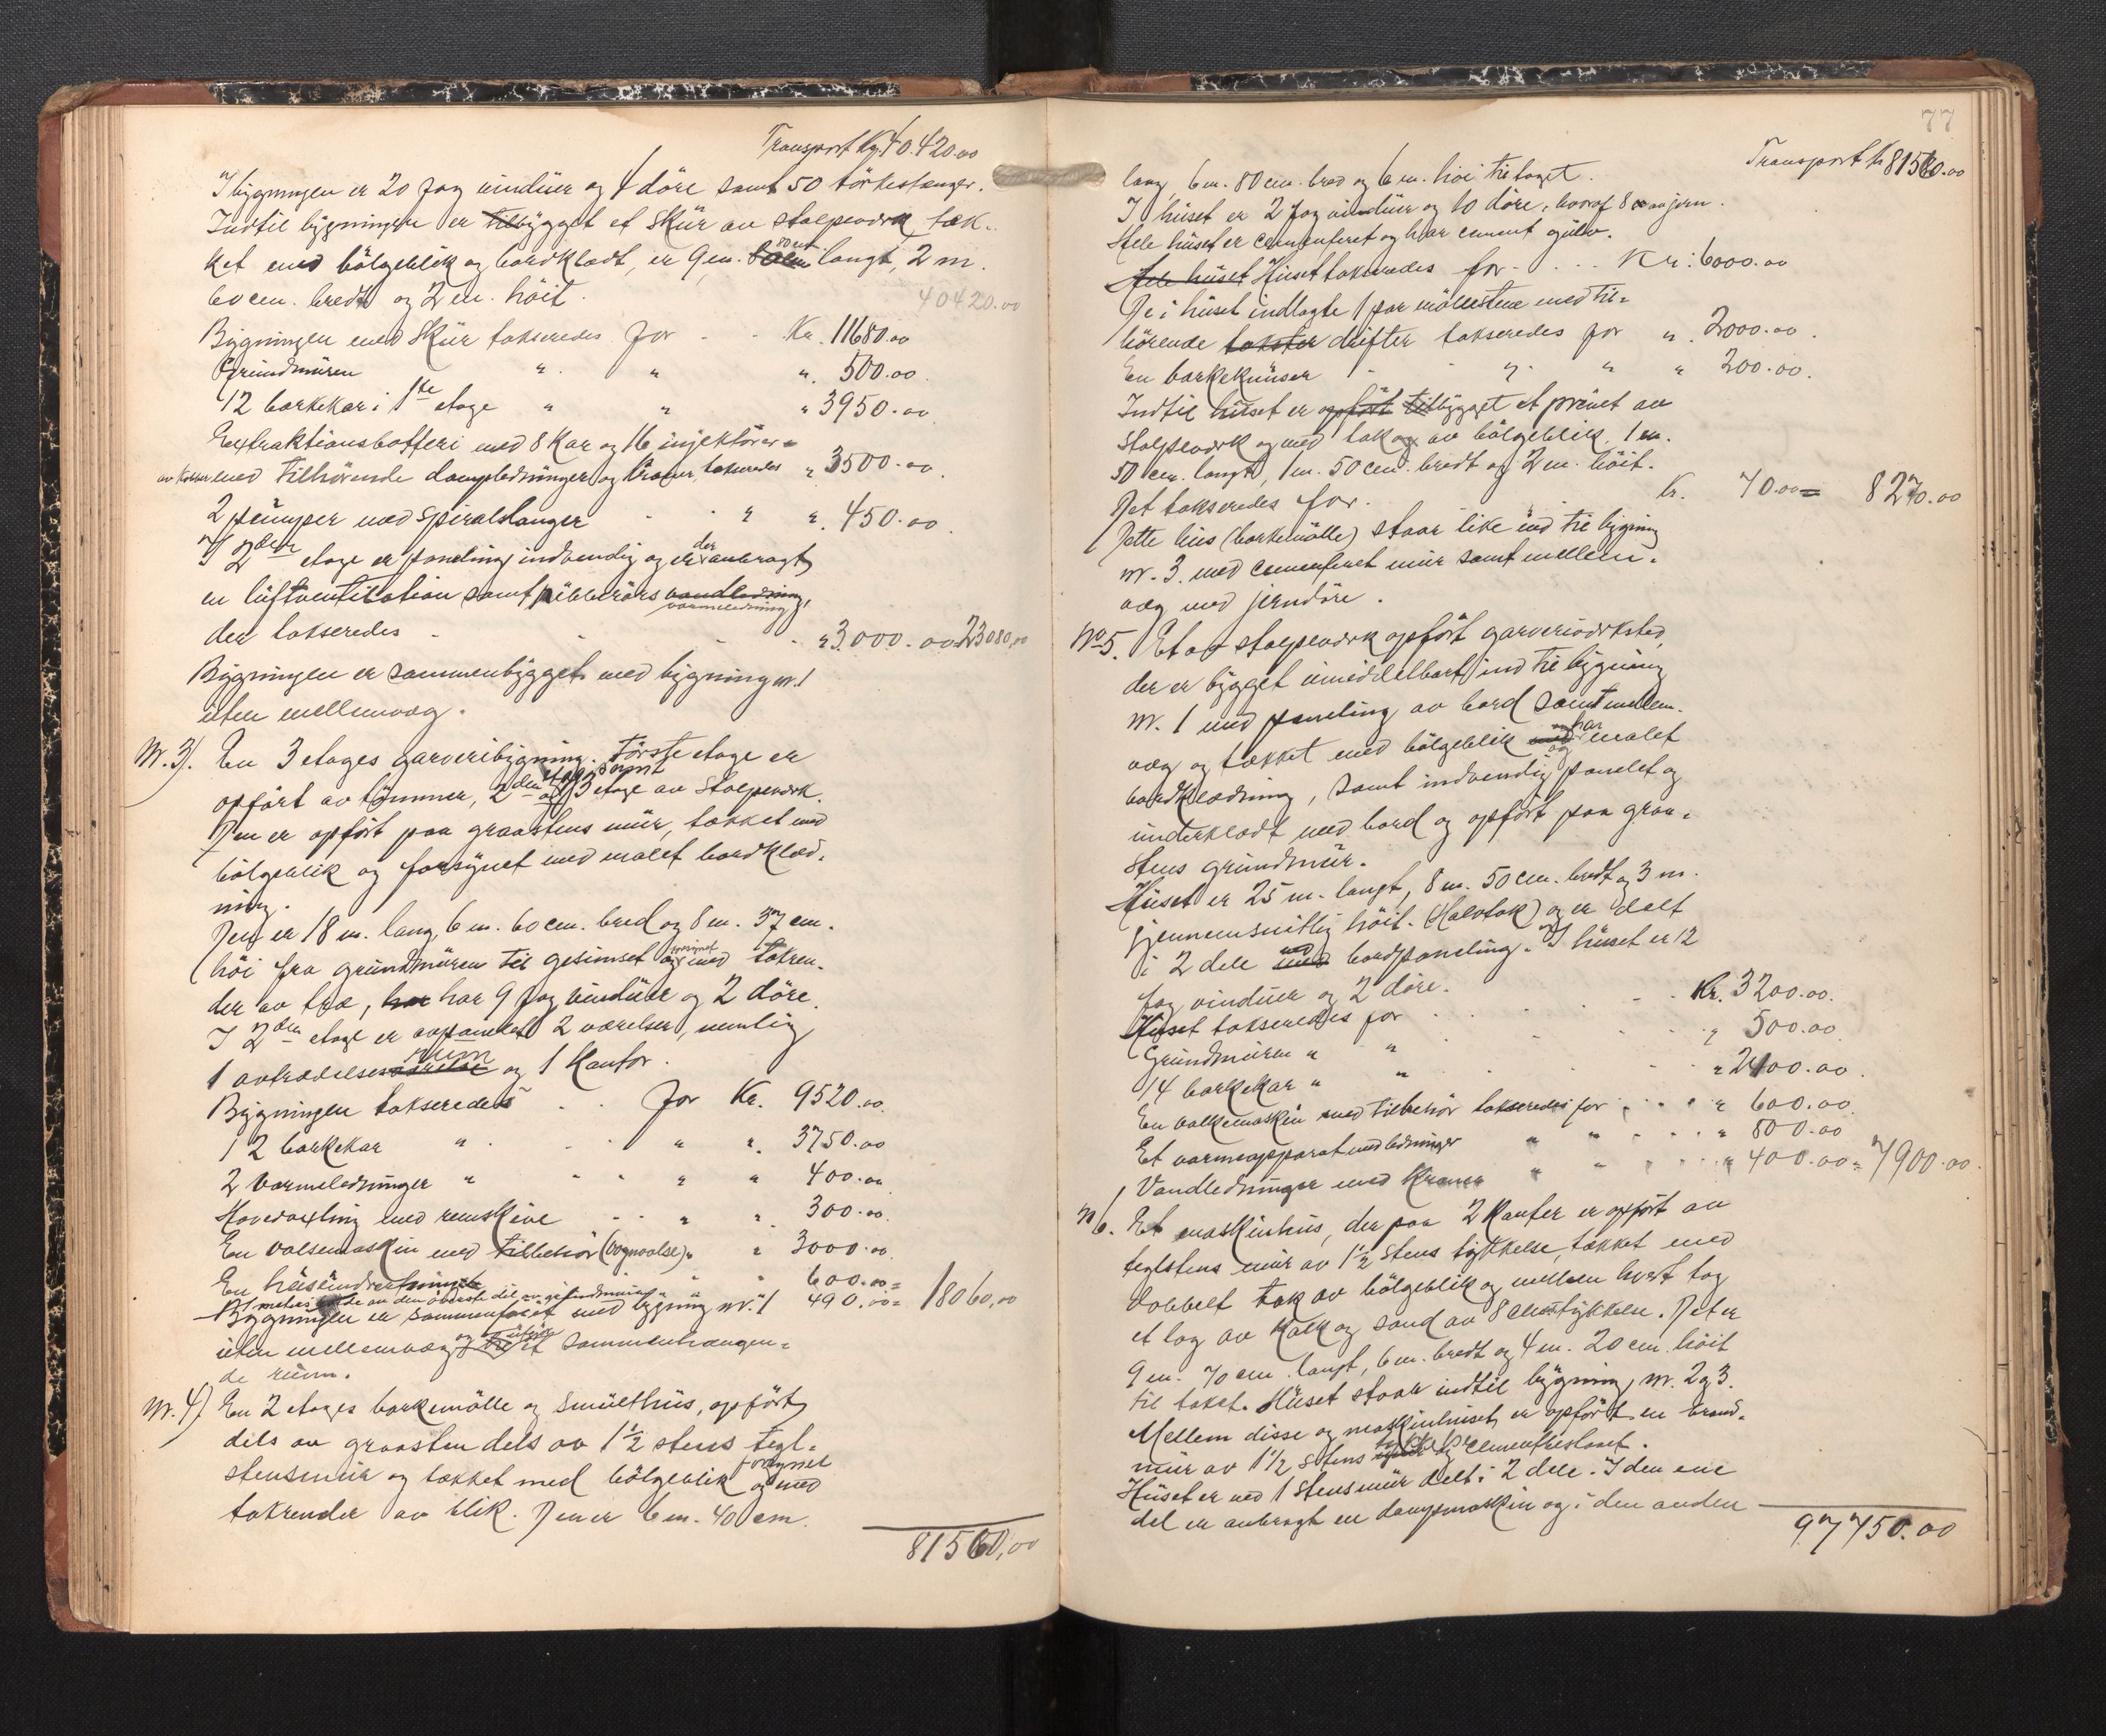 Transport Kr. 40.420.00
I bygningen er 20 fag vinduer og 4 döre samt 50 törkestænger.
Indtil bygningen er tilbygget et skur av stolpeverk, tæk-
ket med bölgeblik og bordklædt, er 9 m. 80 cm. langt, 2 m.
60 cm. bredt og 2 m. höit.
40420.00
Bygningen med skur takseredes for - - Kr. 11680.00
Grundmuren " " ". 500.00
12 barkekar i 1ste etage " " " 3950.00
Extraktionsbatteri med 8 kar og 16 injektörer
av kobber med tilhörende dampledninger og kraner takseredes " 3500.00
2 pumper med spiralslanger - " ". 450.00
I 2den etage er paneling indvendig og der er anbragt
en luftventilation samt ribberörs vandledning,
varmeledning
der takseredes - - - " 3000.00 23080,00
Bygningen er sammenbygget med bygning nr. 1
uten mellemvæg.
Nr. 3). En 3 etages garveribygning. Förste etage er
opfört av tömmer, 2den etage samt 3 etage av stolpeverk.
Den er opfört paa graastens mur, tækket med
bölgeblik og forsynet med malet bordklæd-
ning.
Den er 18 m. lang, 6 m. 60 cm. bred og 8 m. 37 cm.
höi fra grundmuren til gesimset og forsynet med takren-
der av træ, har har 9 fag vinduer og 2 döre.
I 2den etage er avpanelet 2 værelser, nemlig
1 avtrædelsesværelse rum og 1 kontor.
Bygningen takseredes - - for Kr. 9520.00
12 barkekar " - - " ". 3750.00
2 varmeledninger " - - " " 400.00
Hovedaxling med remskive - - " ". 300.00
En valsemaskin med tilbehör (vognvalse) " " 3000.00
En husindretning " 600.00 =
" 490.00 = 18060,00
Bygningen er sammenföiet med bygning nr. 1
uten mellemvæg og utgjör sammenhængen-
de rum.
Nr. 4). En 2 etages barkemölle og smulthus, opfört
dels av graasten dels av 1½ stens tegl-
stensmur og tækket med bölgeblik og forsynet med
takrender av blik. Den er 6 m. 40 cm.
81560,00
77
Transport Kr 81560.00
lang, 6 m. 80 cm. bred og 6 m. höi til taget.
I huset er 2 fag vinduer og 10 döre, hvoraf 8 av jern.
Hele huset er cementeret og har cement gulv.
Hele huset Huset takseredes for - . . - Kr: 6000.00
De i huset indlagte 1 par möllestene med til-
hörende takster drifter takseredes for ". 2000.00.
En barkeknuser - " " " 200.00.
Indtil huset er opfört tilbygget et privet av
stolpeverk og med tak av bölgeblik, 1 m.
50 cm. langt, 1 m. 50 cm. bredt og 2 m. höit.
Det takseredes for. Kr. 70.00 = 8270.00
Dette hus (barkemölle) staar like ind til bygning
nr. 3. med cementeret mur samt mellem-
væg med jerndöre.
No 5. Et av stolpeverk opfört garveriverksted,
der er bygget umiddelbart ind til bygning
nr. 1 med paneling av bord samt mellem-
væg og tækket med bölgeblik med og har malet
bordklædning, samt indvendig panelet og
underklædt med bord og opfört paa graa-
stens grundmur.
Huset er 25 m. langt, 8 m. 50 cm. bredt og 3 m.
gjennemsnitlig höit. (Halvtak) og er delt
i 2 dele med bordpaneling. I huset er 12
fag vinduer og 2 döre.
Huset takseredes for - - - Kr. 3200.00.
Grundmuren " " - - - " 500.00
14 barkekar " " - - - " 2400.00.
En valkemaskin med tilbehör takseredes for - - " 600.00.
Et varmeapparat med ledninger " " - - " 800.00
Vandledninger med kraner " " - - " 400.00 = 7900.00.
No 6. Et maskinhus, der paa 2 kanter er opfört av
teglstens mur av 1½ stens tykkelse, tækket med
dobbelt tak av bölgeblik og mellem hvert tag
et lag av kalk og sand av 8 cms tykkelse. Det er
9 m. 70 cm. langt, 6 m. bredt og 4 m. 20 cm. höit
til taket. Huset staar indtil bygning nr. 2 og 3.
Mellem disse og maskinhuset er opfört en brand-
mur av 1½ stens tykkelse og cementbeslaaet.
Huset er ved 1 stens mur delt i 2 dele. I den ene
del er anbragt en dampmaskin og i den anden
97750.00